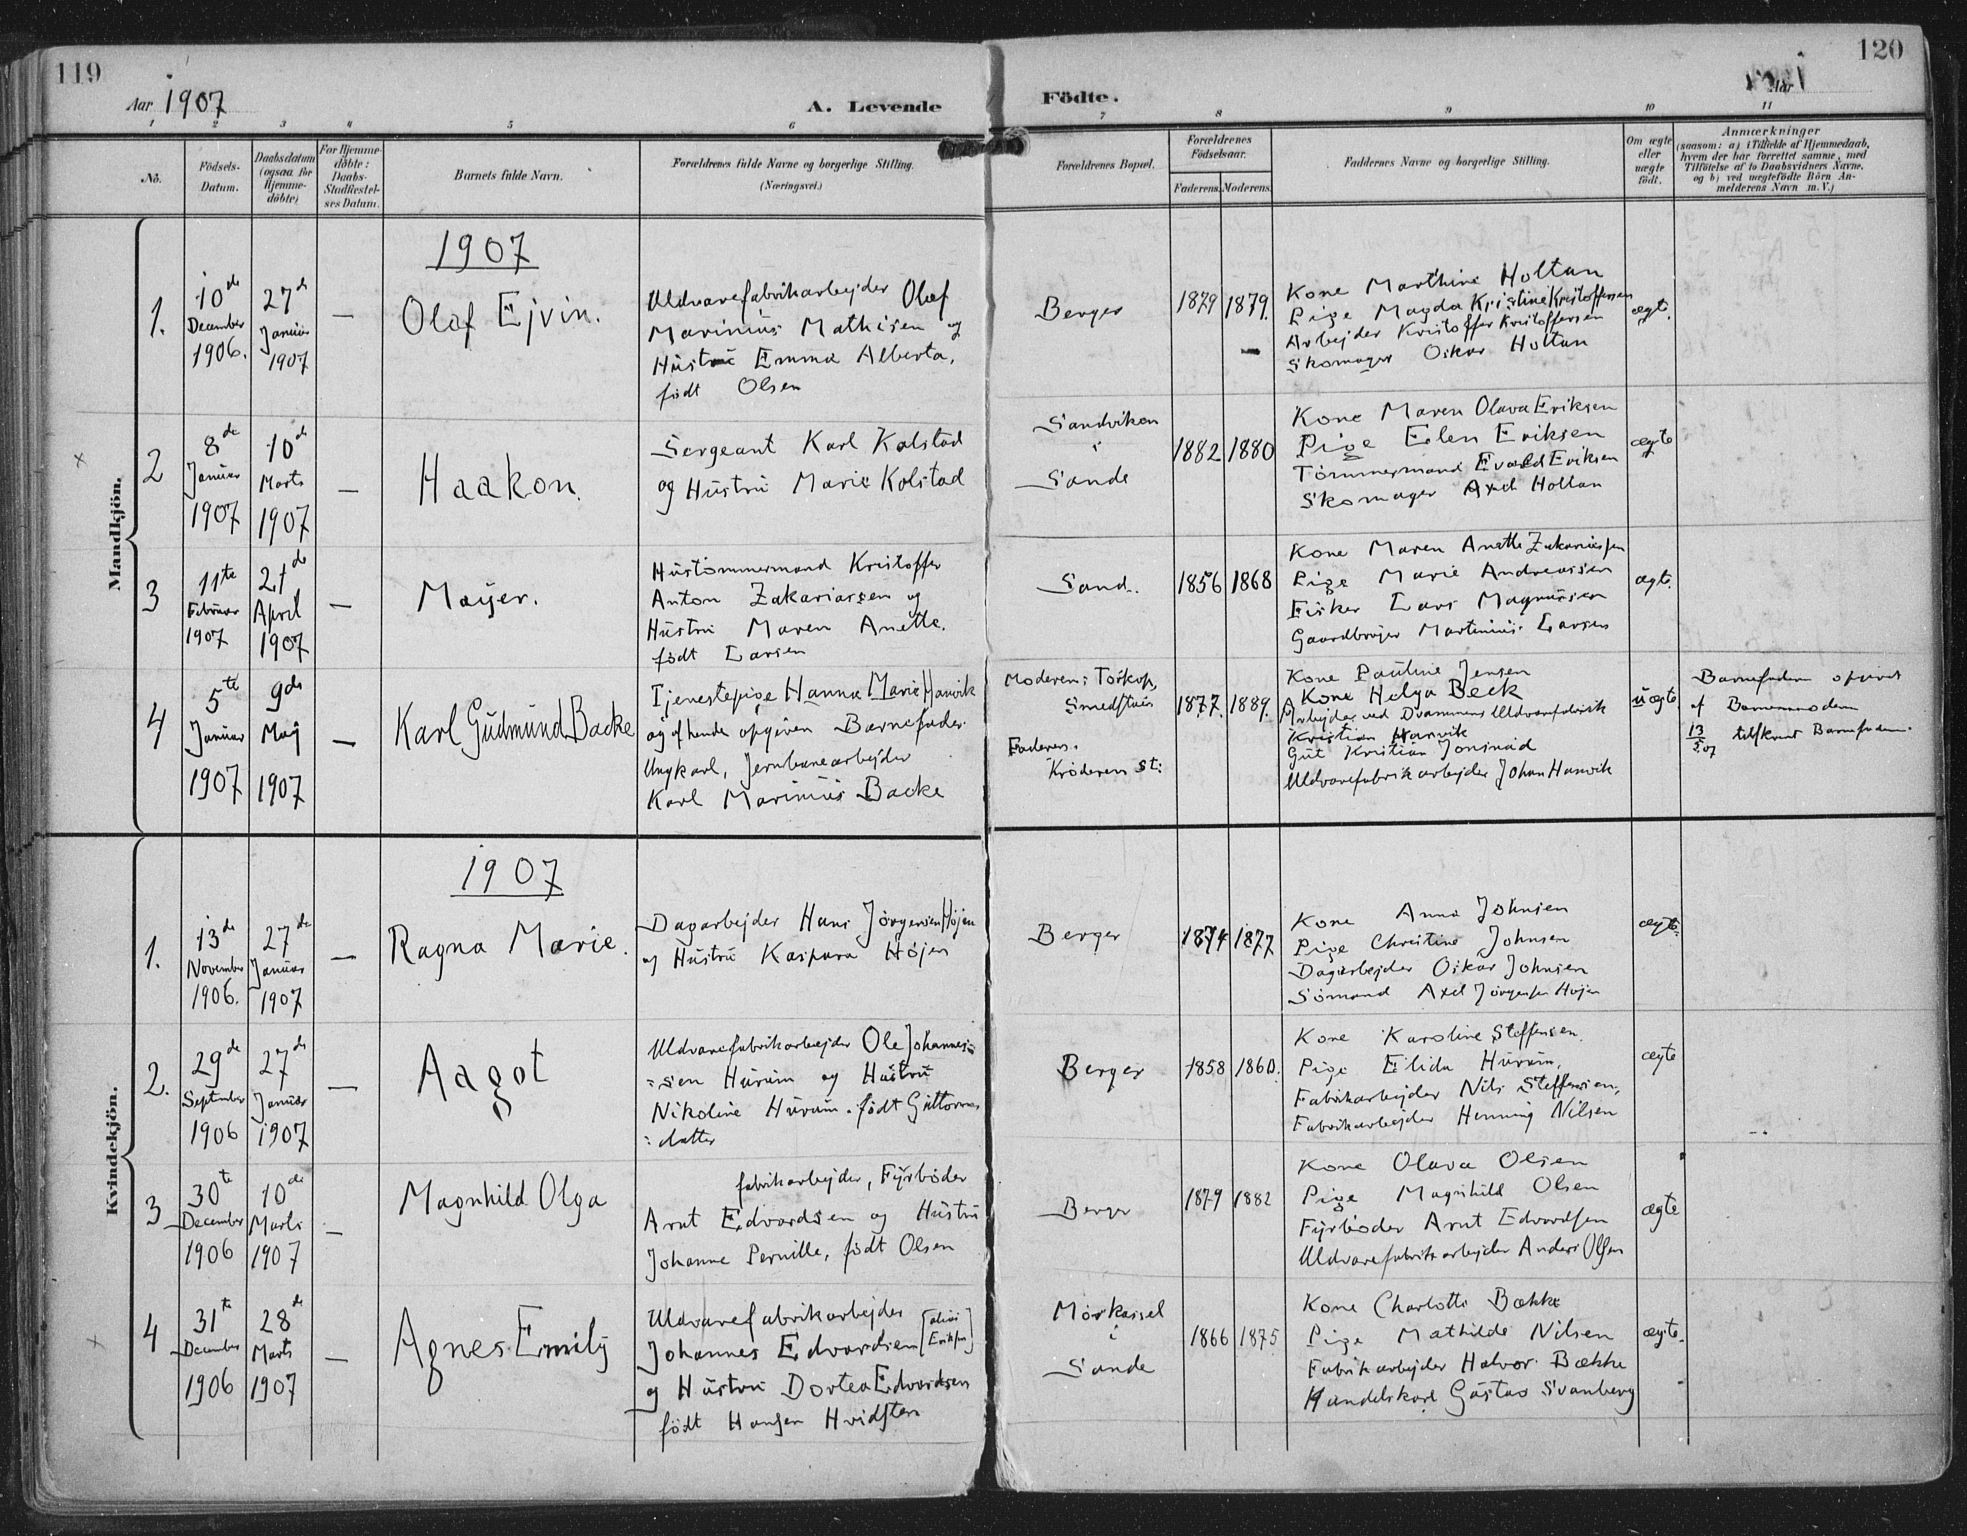 119
Aar 1907
A. Levende
Födte.
Aar
120
1 2 3 4 5 6 7 8 9 10 11
No.
Födsels-
Datum.
Daabsdatum
(ogsaa for
Hjemme-
döbte)
For Hjemme-
döbte:
Daabs-
Stadfæstel-
ses Datum.
Barnets fulde Navn.
Forældrenes fulde Navne og borgerlige Stilling.
(Næringsvei.)
Forældrenes Bopæl.
Forældrenes
Födselsaar.
Faderens. Moderens.
Faddernes Navne og borgerlige Stilling.
Om ægte
eller
uægte
födt.
Anmærkninger
(saasom: a) i Tilfælde af Hjemmedaab,
hvem der har forrettet samme, med
Tilföielse af to Daabsvidners Navne,
og b) ved uægtefödte Börn An-
melderens Navn m. V.)
Mandkjön.
1907
1.
10de
December
1906.
27de
Januar
1907
—
Olaf Ejvin.
Uldvarefabrikarbejder Olaf
Marinius Mathisen og
Hustru Emma Alberta,
født Olsen
Berger
1879
1879.
Kone Marthine Holtan
Pige Magda Kristine Kristoffersen
Arbejder Kristoffer Kristoffersen
Skomager Oskar Holtan
ægte.
×
2
8de
Januar
1907
10de
Marts
1907
—
Haakon.
Sergeant Karl Kolstad
og Hustru Marie Kolstad
Sandviken
i
Sande
1882
1880
Kone Maren Olava Eriksen
Pige Elen Eriksen
Tömmermand Evald Eriksen
Skomager Axel Holtan
ægte
3
11te
Februar
1907
21de
April
1907
—
Majer.
Hustömmermand Kristoffer
Anton Zakariassen og
Hustru Maren Anette.
født Larsen
Sand.
1856
1868
Kone Maren Anette Zakariassen
Pige Marie Andreassen
Fisker Lars Magnussen
Gaardbruger Martinius Larsen
ægte.
4
5te
Januar
1907
9de
Maj
1907
—
Karl Gudmund Backe
Tjenestepige Hanna Marie Hanvik
og af hende opgiven Barnefader
Ungkarl, Jernbanearbejder
Karl Marinius Backe
Moderen: Torkop,
Smedstuis
Faderen.
Kröderen St:
1877.
1889.
Kone Pauline Jensen
Kone Helga Beck
Arbejder ved Drammens Uldvarefabrik
Kristian Hanvik
Gut Kristian
Uldvarefabrikarbejder Johan Hanvik
uægte
Barnefaderen opgivet
af Barnemoderen
13/5 07 tilskrevet Barnefaderen.
Kvindekjön.
1907
1.
13de
November
1906.
27de
Januar
1907
—
Ragna Marie.
Dagarbejder Hans Jörgensen Højen
og Hustru Kaspara Højen
Berger
1874
1877
Kone Anna Johnsen
Pige Christine Johnsen
Dagarbejder Oskar Johnsen
Sömand Axel Jörgensen Højen
ægte.
2.
29de
September
1906
27de
Januar
1907
—
Aagot
Uldvarefabrikarbejder Ole Johannes=
=sen Hurum og Hustru
Nikoline Hurum. født Guttorms
=datter
Berger
1858
1860.
Kone Karoline Steffensen
Pige Elida Hurum,
Fabrikarbejder Nils Steffensen,
Fabrikarbejder Henning Nilsen
ægte
3
30te
December
1906
10de
Marts
1907
—
Magnhild Olga
fabrikarbejder, Fyrböder
Arnt Edvardsen og Hustru
Johanne Pernille, født Olsen
Berger
1879
1882
Kone Olava Olsen
Pige Magnhild Olsen
Fyrböder Arnt Edvardsen
Uldvarefabrikarbejder Anders Olsen
ægte
×
4
31te
December
1906
28de
Marts
1907
—
Agnes Emily
Uldvarefabrikarbejder
Johannes Edvardsen [alias Eriksen]
og Hustru Dortea Edvardsen
født Hansen Hvidsten
Mörkassel
i
Sande
1866
1875
Kone Charlotte Bække
Pige Mathilde Nilsen
Fabrikarbejder Halvor Bække
Handelskarl Gustav Svanberg
ægte.